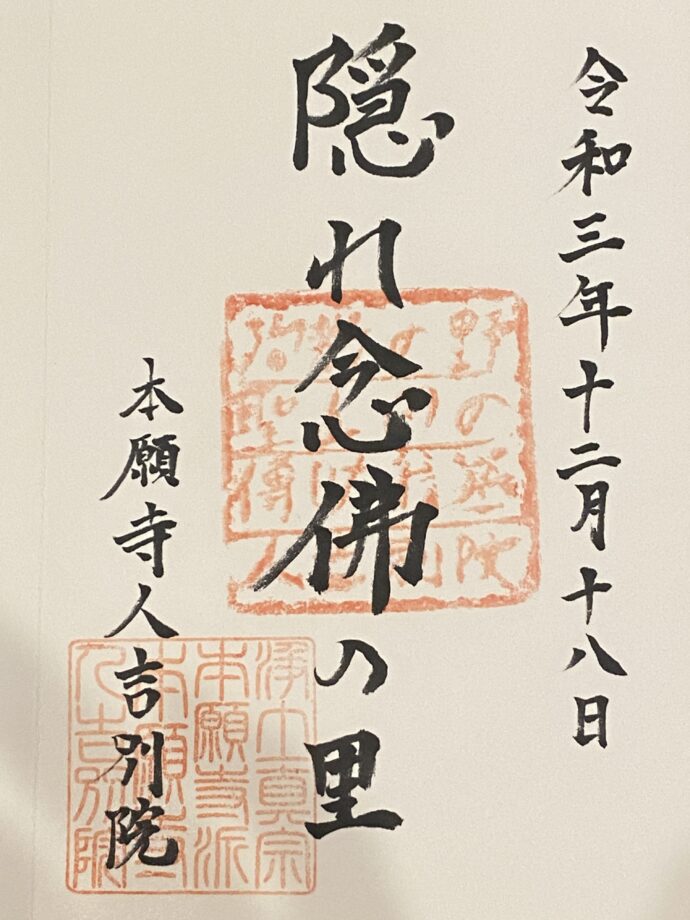 令和三年十二月十八日
隠れ念佛の里
本願寺人吉別院
浄土真宗
本願寺派
本願寺
人吉別院